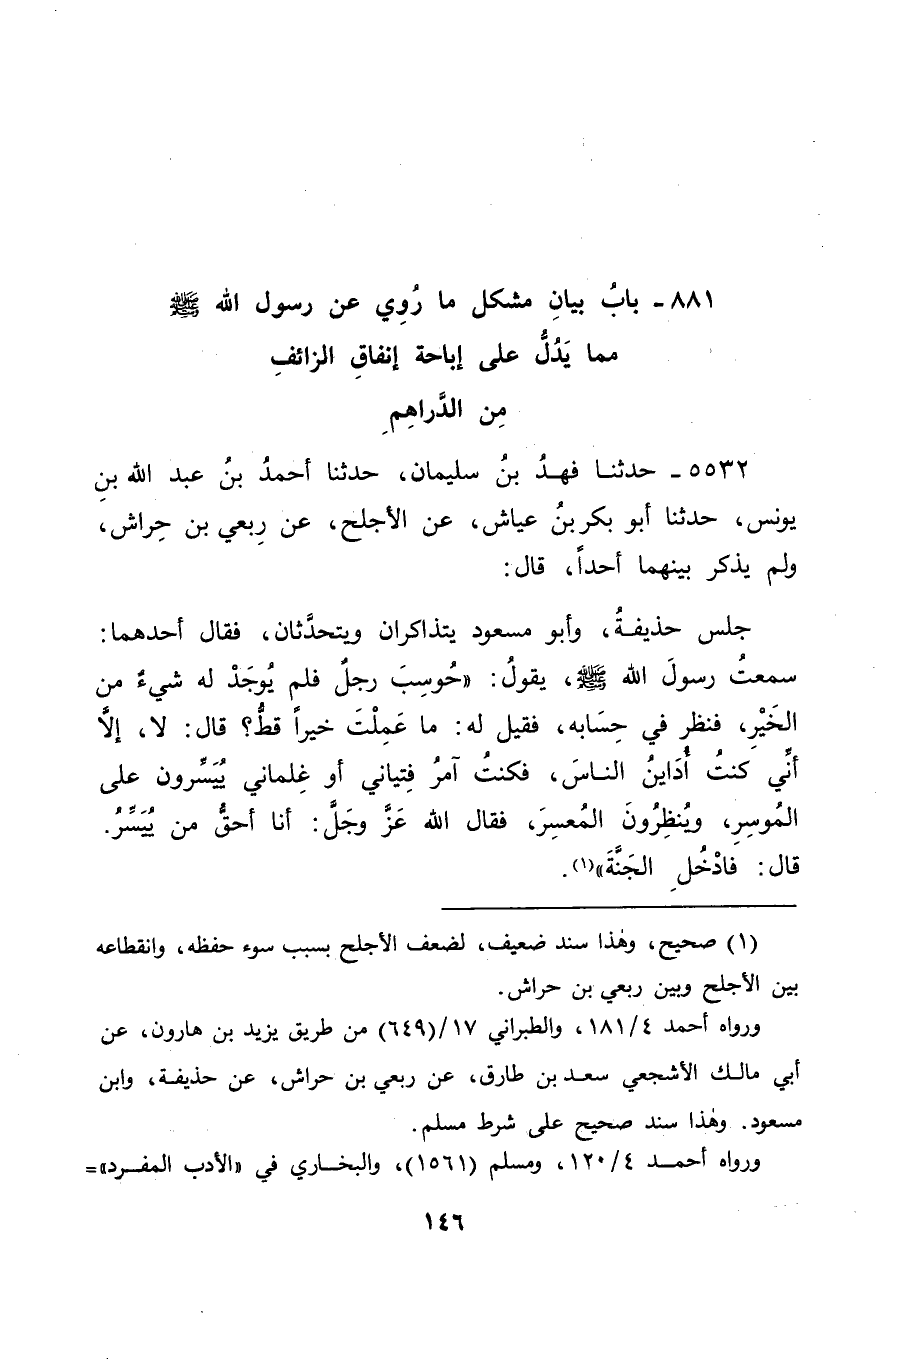 ٨٨١ - بابُ بيانِ مشكل ما رُوِي عن رسول الله ﷺ
مما يَدُلُّ على إباحة إنفاقِ الزائفِ
مِن الدَّراهِمِ
٥٥٣٢ - حدثنا فهدُ بنُ سليمان، حدثنا أحمدُ بنُ عبد الله بنِ
يونس، حدثنا أبو بكر بنُ عياش، عن الأجلح، عن رِبعي بن حِراش،
ولم يذكر بينهما أحداً، قال:
جلس حذيفةُ، وأبو مسعود يتذاكران ويتحدَّثان، فقال أحدهما:
سمعتُ رسولَ الله ﷺ، يقولُ: «حُوسِبَ رجلٌ فلم يُوجَدْ له شيءٌ من
الخَيْرِ، فنظر في حِسَابه، فقيل له: ما عَمِلْتَ خيراً قطُّ؟ قال: لا، إلَّا
أنِّي كنتُ أُدَاينُ الناسَ، فكنتُ آمرُ فِتياني أو غِلماني يُيَسِّرون على
المُوسِرِ، ويُنظِرُونَ المُعسِرَ، فقال الله عَزَّ وجَلَّ: أنا أحقُّ من يُيَسِّرُ.
قال: فادْخُلِ الجَنَّةَ»(١).
(١) صحيح، وهٰذا سند ضعيف، لضعف الأجلح بسبب سوء حفظه، وانقطاعه
بين الأجلح وبين ربعي بن حراش.
ورواه أحمد ١٨١/٤، والطبراني ١٧/(٦٤٩) من طريق يزيد بن هارون، عن
أبي مالك الأشجعي سعد بن طارق، عن ربعي بن حراش، عن حذيفة، وابن
مسعود. وهٰذا سند صحيح على شرط مسلم.
ورواه أحمد ١٢٠/٤، ومسلم (١٥٦١)، والبخاري في «الأدب المفرد»=
١٤٦